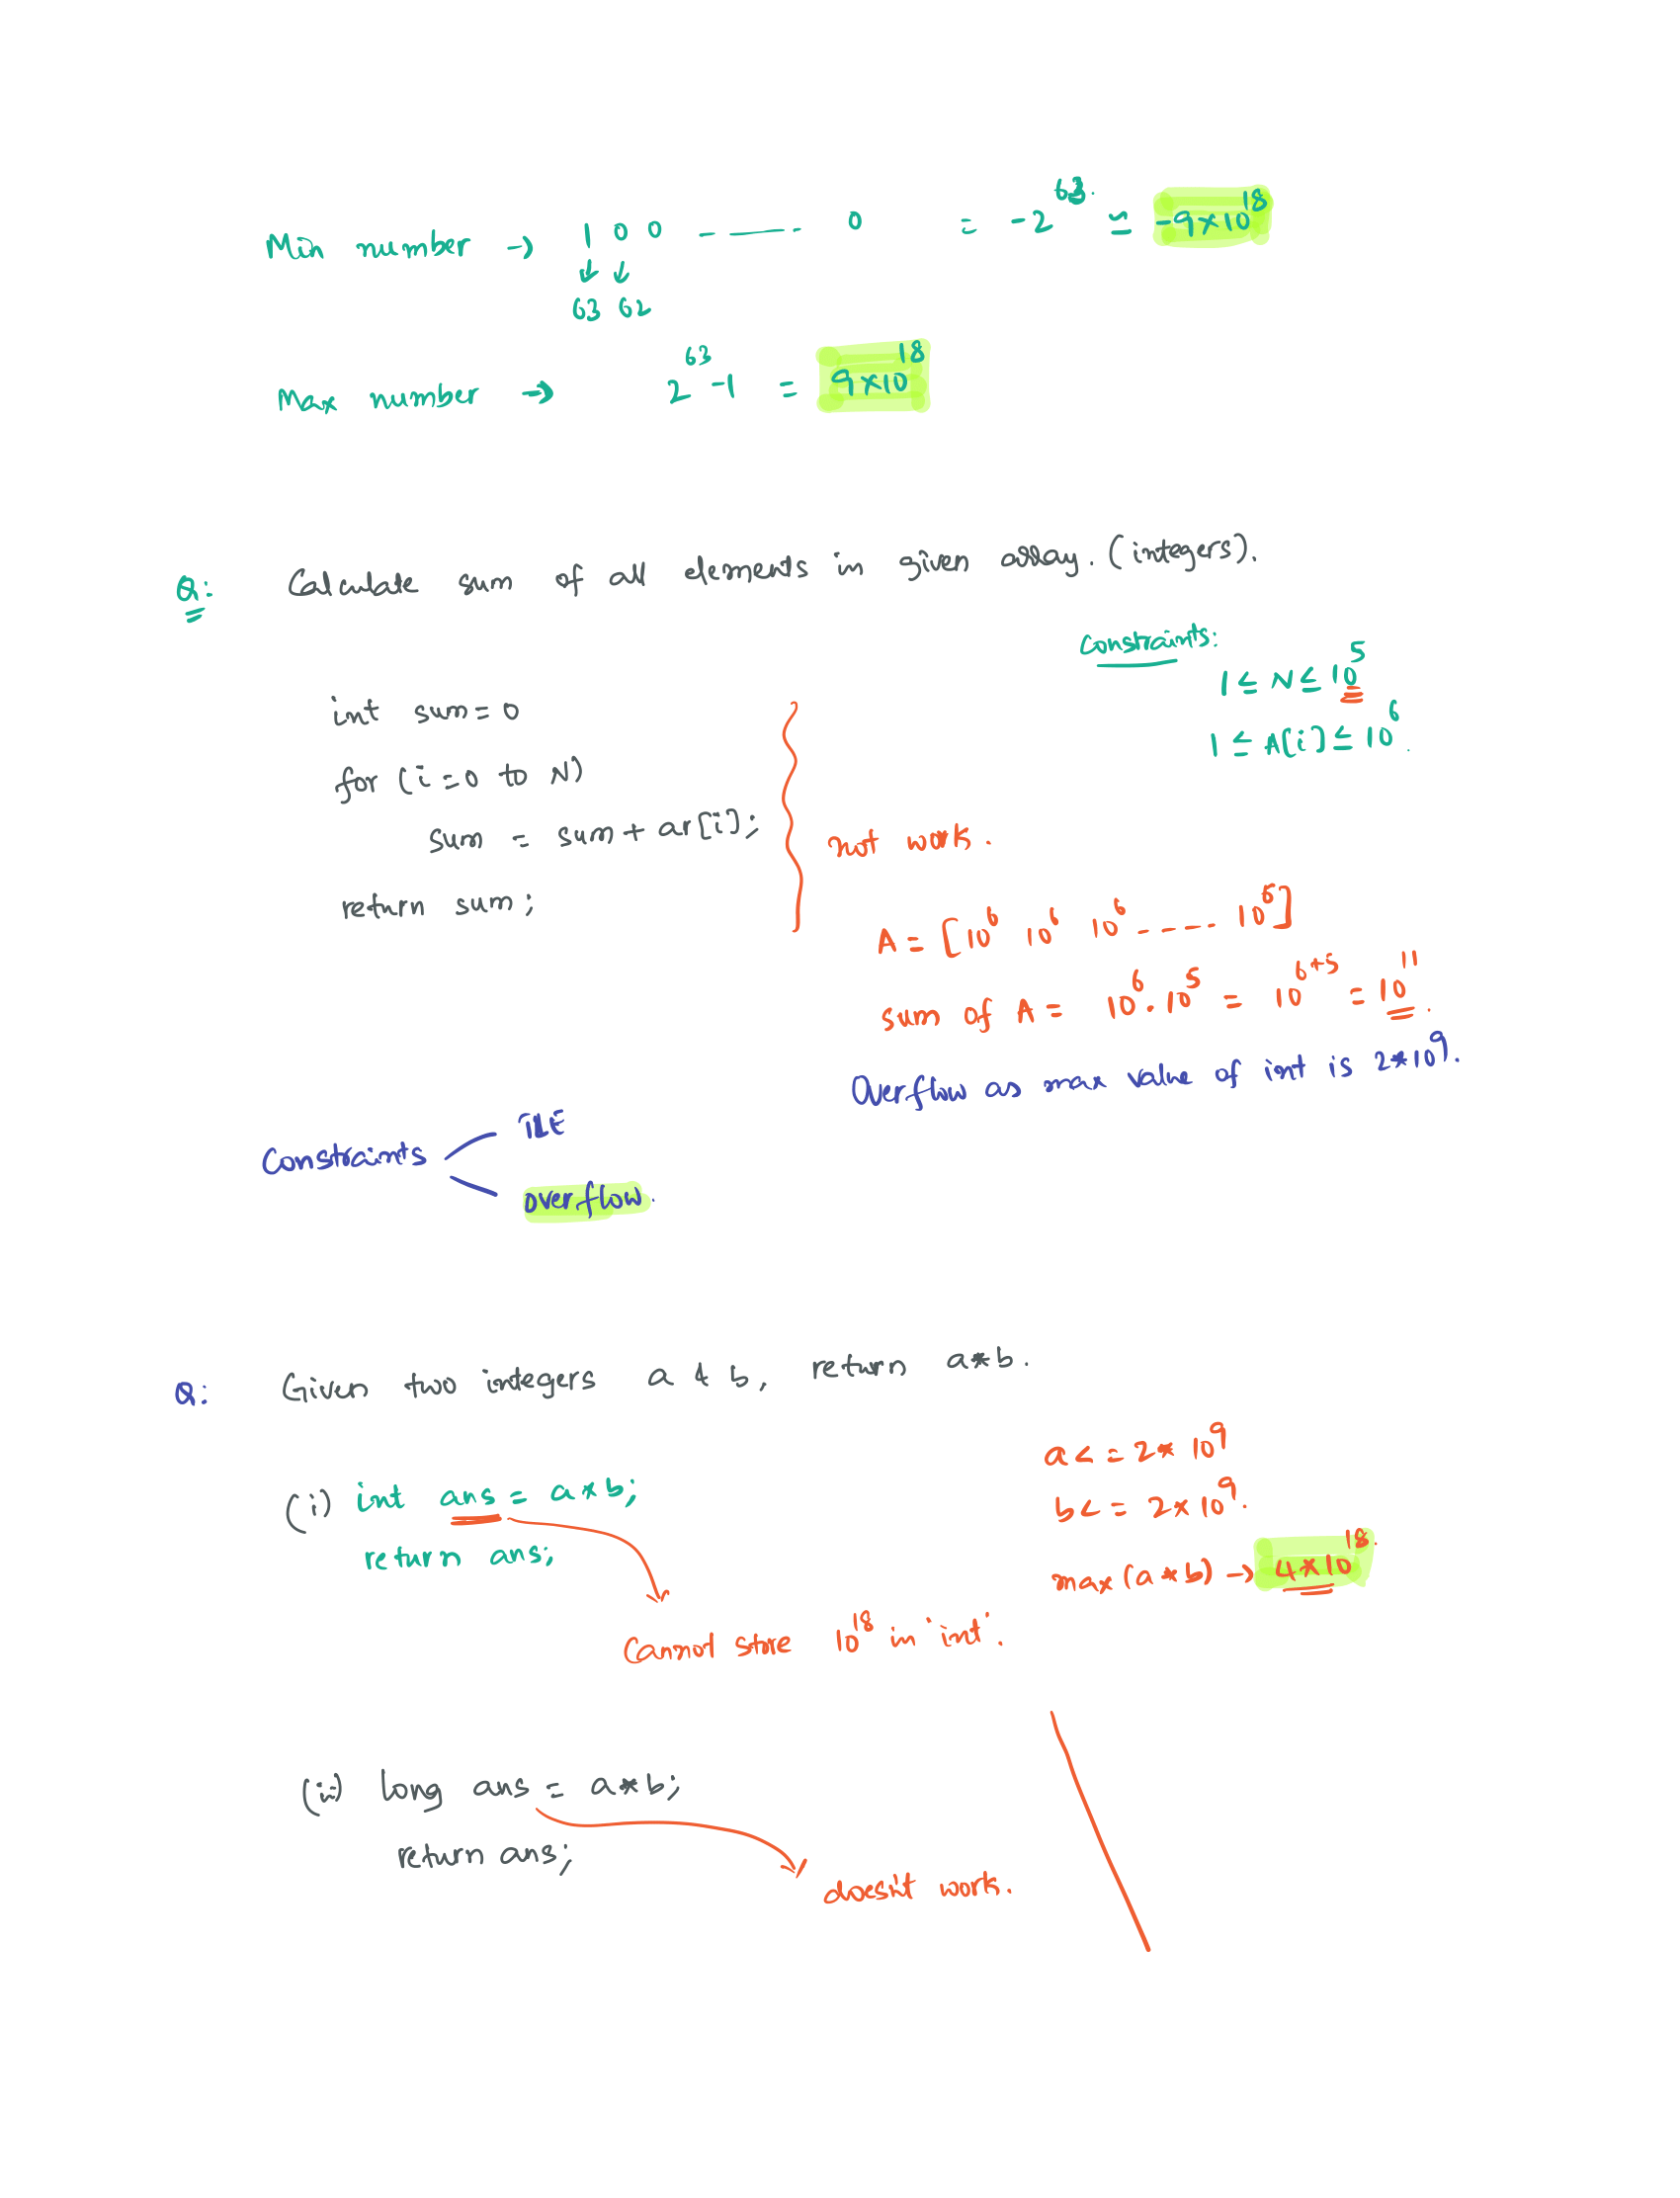 Min number → 1 0 0 ------ 0 = -2^63 ≃ -9×10^18
↓ ↓
63 62
Max number → 2^63 -1 = 9×10^18
Q: Calculate sum of all elements in given array. (integers).
Constraints:
1 ≤ N ≤ 10^5
1 ≤ A[i] ≤ 10^6.
int sum = 0
for (i=0 to N)
sum = sum + ar[i];
return sum;
not work.
A = [10^6 10^6 10^6 ----- 10^6]
sum of A = 10^6 . 10^5 = 10^(6+5) = 10^11.
Overflow as max value of int is 2*10^9.
Constraints
TLE
overflow.
Q: Given two integers a & b, return a*b.
(i) int ans = a*b;
return ans;
a <= 2* 10^9
b <= 2*10^9.
max(a*b) → 4*10^18.
Cannot store 10^18 in 'int'.
(ii) long ans = a*b;
return ans;
doesn't work.